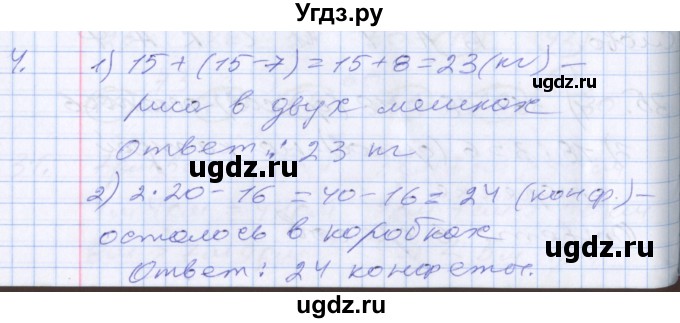 Угдз.ру
4. 1) 15 + (15 - 7) = 15 + 8 = 23 (кг) -
риса в двух мешках
Ответ: 23 кг.
2) 2 · 20 - 16 = 40 - 16 = 24 (конф.) -
осталось в коробках
Ответ: 24 конфеты.
ugdz.ru
ugdz.ru
ugdz.ru
ugdz.ru
ugdz.ru